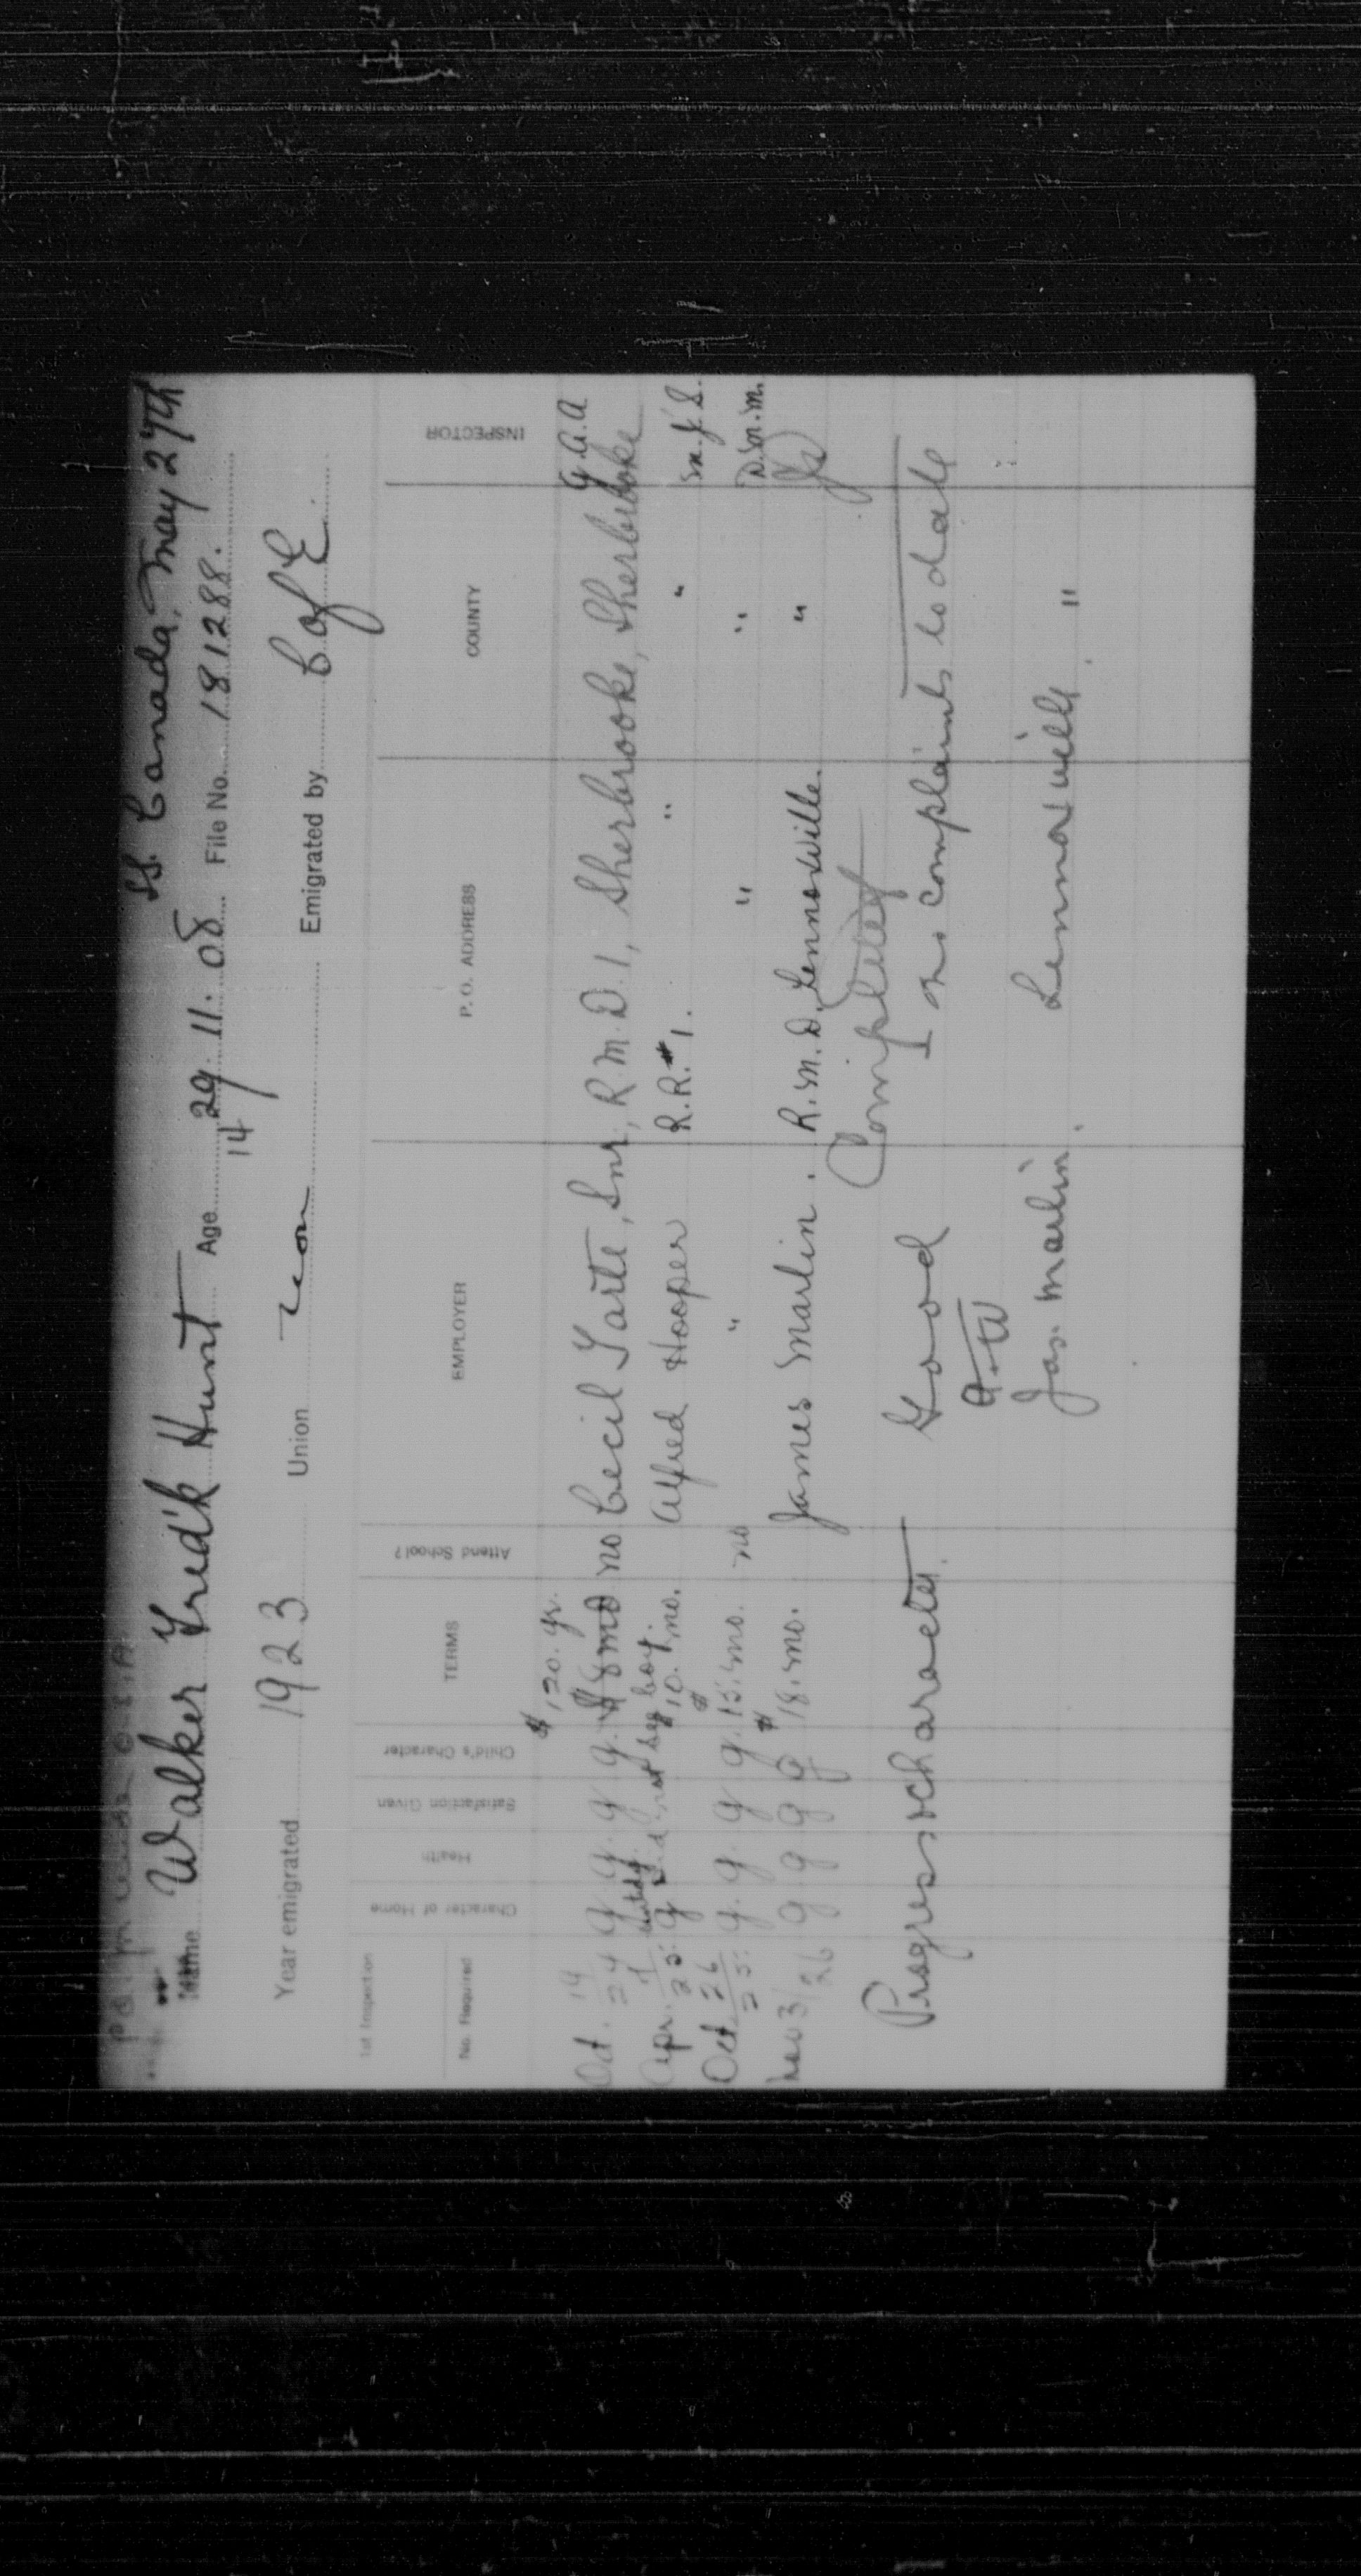 SS. Canada, May 27th
Name Walker Fred'k Hunt Age 29. 11. 08 File No. 181288.
14
Year emigrated 1923 Union non Emigrated by C of E
1st Inspection
No. Required Character of Home Health Satisfaction Given Child's Character TERMS Attend School? EMPLOYER P. O. ADDRESS COUNTY INSPECTOR
$120. yr.
Oct. 14/24 g g. g g. no Cecil Tarte, Snr, R.M.D. 1, Sherbrooke, Sherbrooke G.A.A
Apr. 1/25: g $10. mo. Alfred Hooper R.R.#1. " " M.J.S.
Oct. 26/25: g. g. g g. $15. mo. no " " " D.M.M.
Nov 3/26 g g g g $18. mo. James Marlin. R.M.D. Lennoxville. "
Completed
Progress & character Good No complaints to date
Jas. Marlin. Lennoxville "